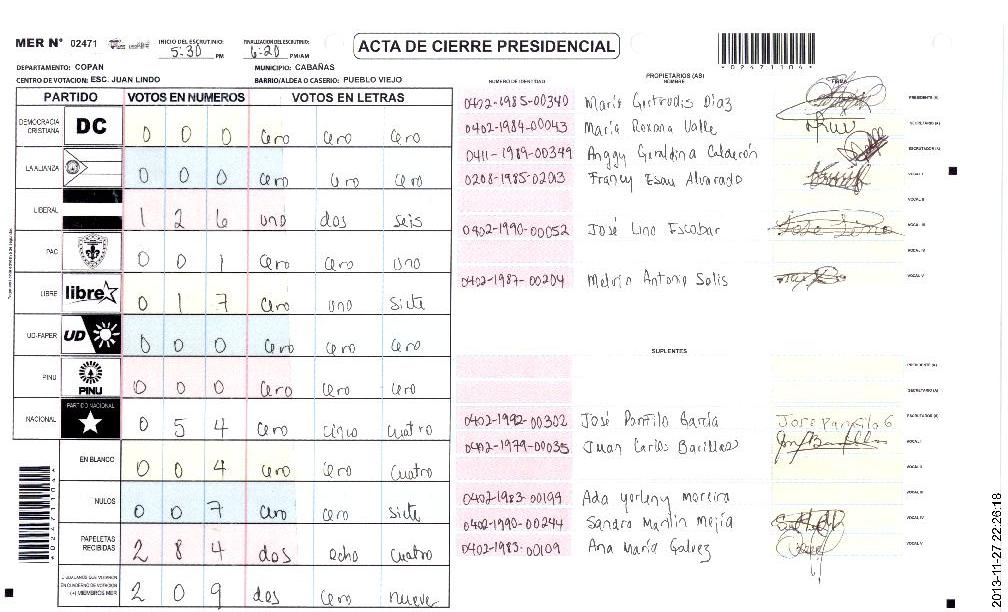 MER N° 02471
INICIO DEL ESCRUTINIO: 5:30 PM
FINALIZACION DEL ESCRUTINIO: 6:20 PM/AM
ACTA DE CIERRE PRESIDENCIAL
*02471104*
DEPARTAMENTO: COPAN
MUNICIPIO: CABAÑAS
CENTRO DE VOTACION: ESC. JUAN LINDO
BARRIO/ALDEA O CASERIO: PUEBLO VIEJO
PARTIDO VOTOS EN NUMEROS VOTOS EN LETRAS
DEMOCRACIA CRISTIANA DC 0 0 0 Cero Cero Cero
LA ALIANZA 0 0 0 Cero Cero Cero
LIBERAL 1 2 6 uno dos seis
PAC 0 0 1 Cero Cero uno
LIBRE libre 0 1 7 Cero uno siete
UD-FAPER UD 0 0 0 Cero Cero Cero
PINU PINU 0 0 0 Cero Cero Cero
NACIONAL PARTIDO NACIONAL 0 5 4 Cero cinco cuatro
EN BLANCO 0 0 4 Cero Cero Cuatro
NULOS 0 0 7 Cero Cero siete
PAPELETAS RECIBIDAS 2 8 4 dos ocho cuatro
CIUDADANOS QUE VOTARON EN CUADERNO DE VOTACION (+) MIEMBROS MER 2 0 9 dos Cero nueve
*02471104*
PROPIETARIOS (AS)
NUMERO DE IDENTIDAD NOMBRE FIRMA
0402-1985-00340 María Gertrudis Díaz PRESIDENTE (A)
0402-1984-00043 María Roxana Valle SECRETARIO (A)
0411-1989-00349 Anggy Geraldina Calderón ESCRUTADOR (A)
0208-1985-02013 Francy Esau Alvarado VOCAL I
VOCAL II
0402-1990-00052 José Lino Escobar VOCAL III
VOCAL IV
0402-1987-00204 Melvin Antonio Solis VOCAL V
SUPLENTES
PRESIDENTE (A)
SECRETARIO (A)
0402-1992-00302 José Panfilo García Jose Panfilo G ESCRUTADOR (A)
0402-1979-00035 Juan Carlos Barillas VOCAL I
VOCAL II
0402-1983-00199 Ada Yorleny Moreira VOCAL III
0402-1990-00244 Sandra Marlin Mejía VOCAL IV
0402-1983-00109 Ana María Galvez VOCAL V
2013-11-27 22:26:18